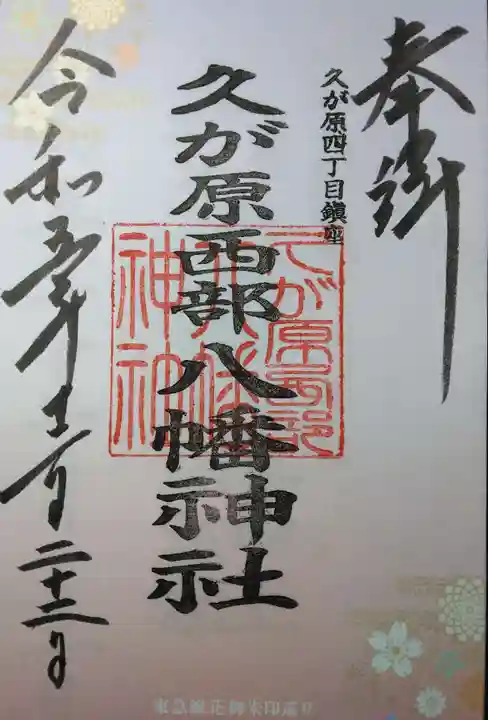 奉拝
久が原四丁目鎮座
久が原西部八幡神社
久が原西部
八幡
神社
令和五年十一月二十三日